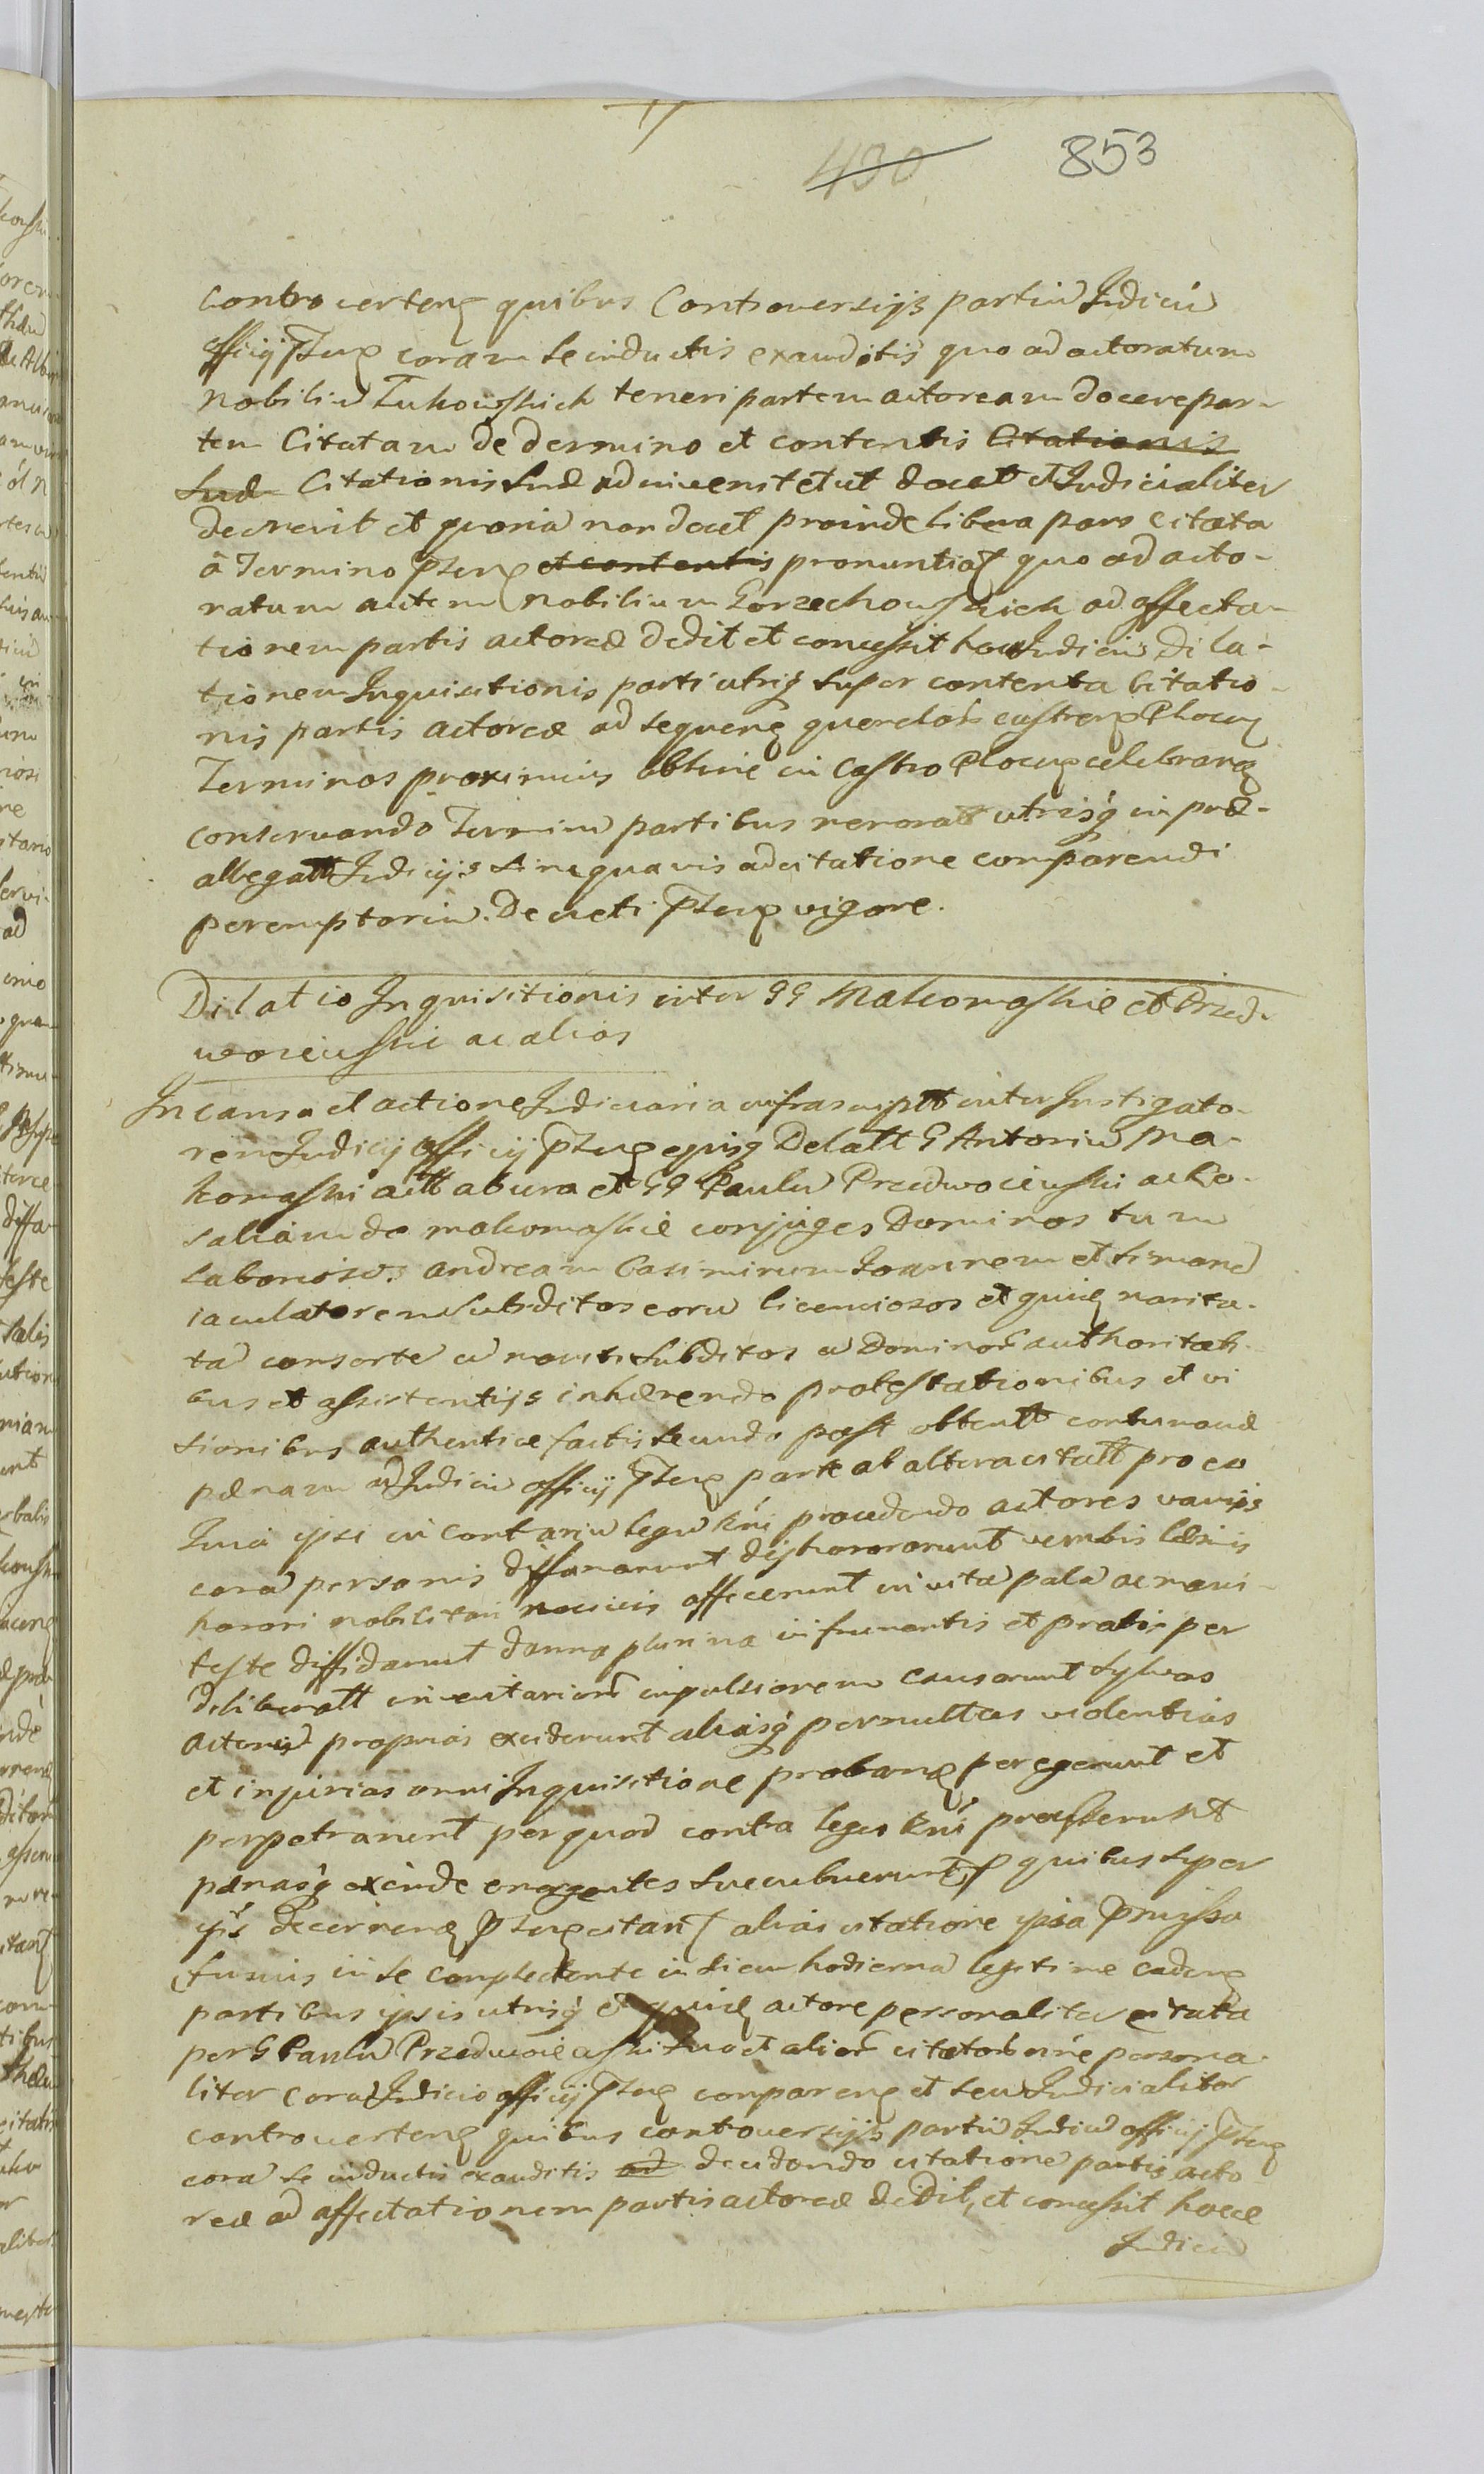 490 853
controverten quibus Controversijs partiu Judiciu
officij Psen coram se inductis exauditis quo ad actoratum
Nobiliu Zukowskich teneri partem actoream docere par-
tem Citatam de dermino et contentis Citationis
Suæ Citationis Suæ adinvenit et ut doceat Judicialiter
decrevit et quonia non docet proinde libera pars citata
à Termino Psen et contentis pronuntiat quo ad acto-
ratum autem Nobilium Gorzechowskich ad affecta-
tionem partis actoreæ dedit et concessit hocce Judiciu Dila-
tionem Inquisitionis parti utriq super contenta citatio-
nis partis actoreæ ad sequen querelar castren Plocen
Terminos proximius obtine in Castro Plocen celebran
conservando Terminu partibus memoratt utrisq in præ-
allegatt Judicijs sine quavis adcitatione comparendi
peremptoriu. Decreti Psen vigore.
Dilatio Inquisitionis inter GG Makomaskie et Przed-
wocieuskie ac alios
In causa et actione Judiciaria infrascriptt inter Instigato-
rem Judicij officij Psen ejusq Delatt G Antoniu Ma-
komaski actt ab una et GG Paulu Przedwocieuski ac Ro-
saliam de makomaskie conjuges Dominos tum
laboriosos andream Casimirum Joannem et Simone
iaculatorem Subditos eoru licenciosos et quide narita-
ta consorte a nonitis Subditos a Dominor authoritati-
bus et assistentijs inhærendo protestationibus et vi
sionibus authentice factis secundo post obtentt contumaciæ
pænam ad Judiciu officij Psen parte ab altera citatt pro eo
Quia ipsi in contrariu legu Rni procedendo actores varijs
cora personis diffamarunt dishonorarunt verbis læsivis
honori nobilitari nocivis affecerunt in vita pala ac mani-
feste diffidarunt damna plurima in frumentis et pratis per
deliberatt inventarior impulsionem causarunt sylvas
actoru proprias exciderunt aliasq permultas violentias
et injurias omni Inquisitione proban peregerunt et
perpetrarunt per quod contra leges Rni præsserunt
pænasq exinde emergentes succubuerunt P quibus super
ijs decernen Psen citan alias citatione ipsa Præmissa
fusius in se complectente in diem hodierna legitime caden
partibus ipsis utrisq et quide actore personaliter citata
per G Paulu Przedwocieuski suo et alior citator nne persona-
liter cora Judicio officij Psen comparen et seu Judicialiter
controverten quibus controversijs partiu Judiciu officij Psen
cora se inductis exauditis ad decidendo citatione partis acto
reæ ad affectationem partis actoreæ dedit, et concessit hocce
Judiciu